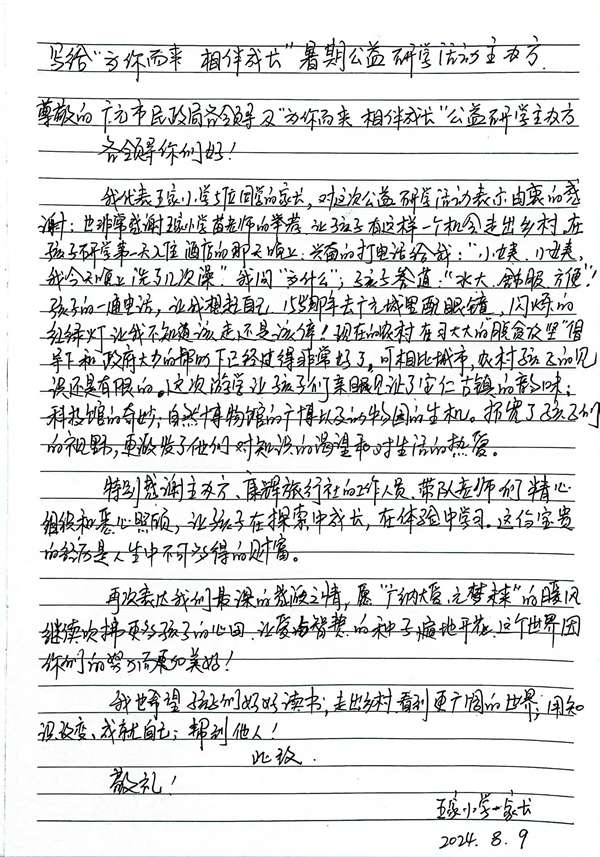 写给“为你而来 相伴成长”暑期公益研学活动主办方
尊敬的广元市民政局各领导及“为你而来 相伴成长”公益研学主办方
各领导你们好！
我代表王家小学5位同学的家长，对这次公益研学活动表示由衷的感
谢；也非常感谢王家小学苗老师的举荐，让孩子有这样一个机会走出乡村。在
孩子研学第一天入住酒店的那天晚上，兴奋的打电话给我：“小姨，小姨，
我今天晚上洗了几次澡”我问“为什么”；孩子答道：“水大、舒服、方便”！
孩子的一通电话，让我想起自己15岁那年去广元城里配眼镜，闪烁的
红绿灯让我不知道该走还是该停！现在的农村在习大大的脱贫攻坚“倡
导下和政府大力的帮助下已经过得非常好了。可相比城市，农村孩子的见
识还是有限的。这次游学让孩子们亲眼见证了宝仁古镇的韵味；
科技馆的奇妙；自然博物馆的广博以及动物园的生机。拓宽了孩子们
的视野，更激发了他们对知识的渴望和对生活的热爱。
特别感谢主办方、 旅行社的工作人员、带队老师们精心
组织和悉心照顾，让孩子在探索中成长，在体验中学习。这份宝贵
的经历是人生中不可多得的财富。
再次表达我们最深的感激之情，愿“广纳大爱、元梦未来”的暖风
继续吹拂更多孩子的心田，让爱与智慧的种子，遍地开花，这个世界因
你们的努力而更加美好！
我也希望孩子们好好读书；走出乡村，看到更广阔的世界；用知
识改变、成就自己；帮到他人！
此致
敬礼！
王家小学一家长
2024.8.9